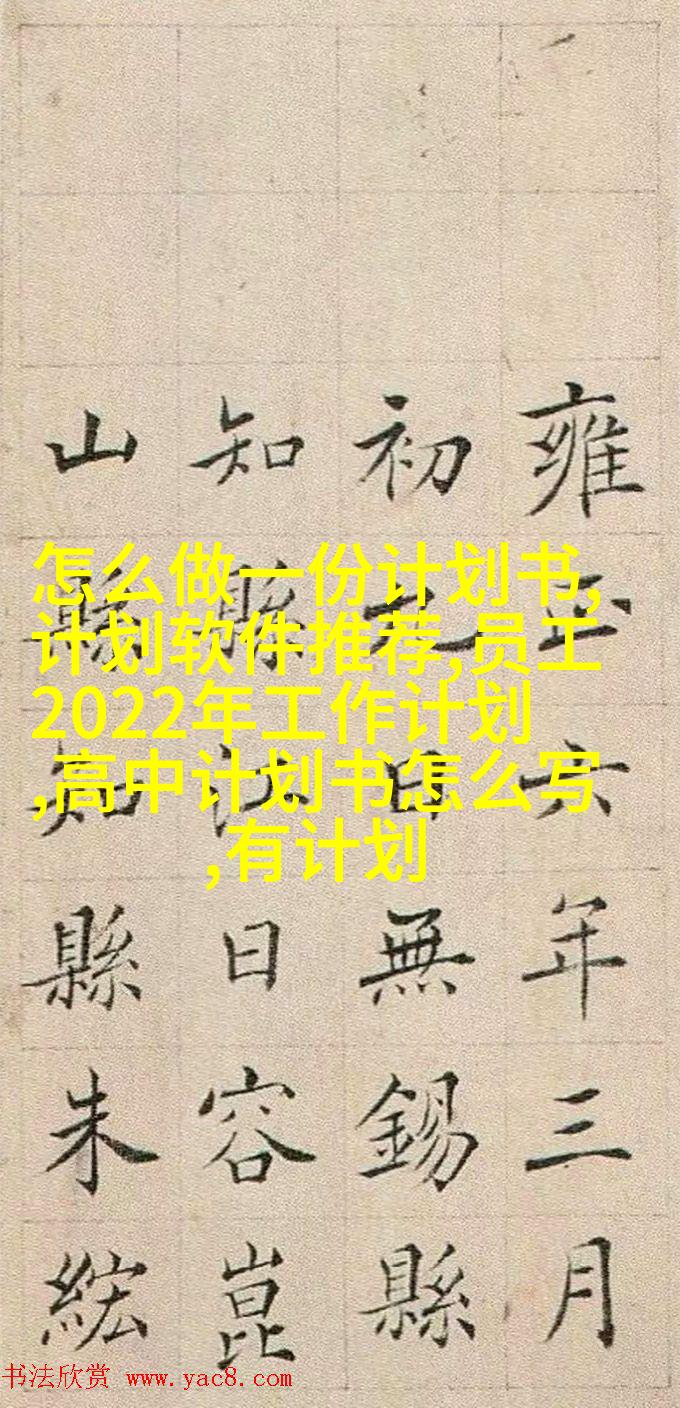 怎么做一份计划书,
计划软件推荐,员工
2022年工作计划
,高中计划书怎么写
,有计划
雍正六年三月
初日無錫縣
知縣江日容崑
山縣知縣朱紘
书法欣赏 www.yac8.com